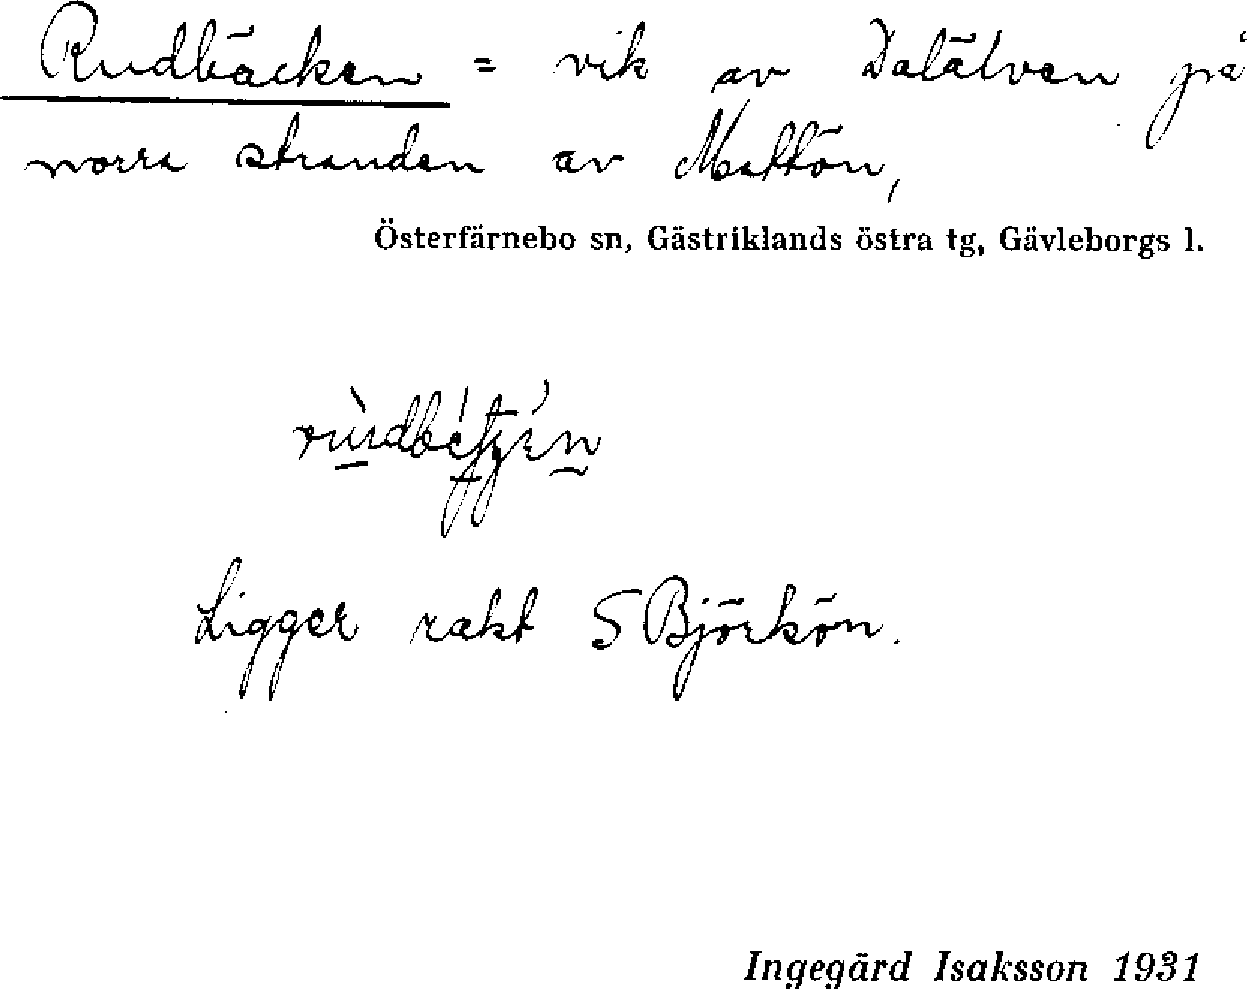 Rudbäcken = vik av Dalälven på
norra stranden av Mattön,
Österfärnebo sn, Gästriklands östra tg, Gävleborgs l.
Ligger rakt S Björkön.
Ingegärd Isaksson 1931